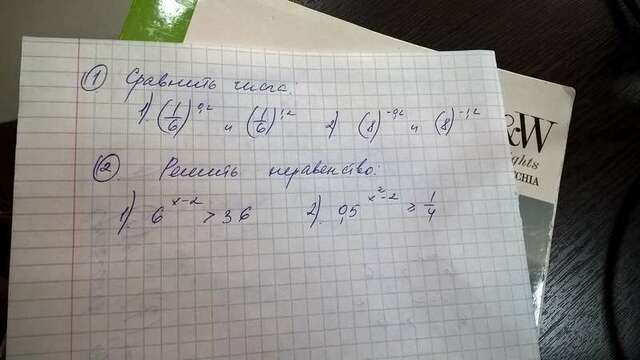 ① Сравнить числа:
1) (1/6)^0,2 и (1/6)^1,2 2) (8)^-0,2 и (8)^-1,2
② Решить неравенство:
1) 6^x-2 > 36 2) 0,5^x²-2 ≥ 1/4
&W
ghts
CCHIA